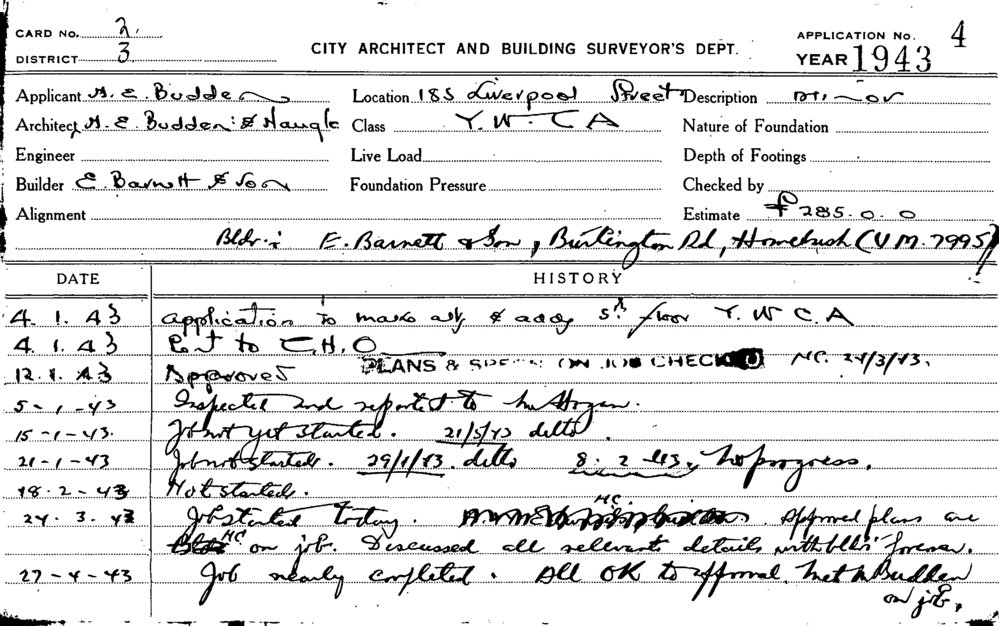 CARD NO. 2.
DISTRICT 3
CITY ARCHITECT AND BUILDING SURVEYOR'S DEPT.
APPLICATION No. 4
YEAR 1943
Applicant H. E. Budden Location 185 Liverpool Street Description minor
Architect H. E. Budden & Nangle Class Y. W. C A Nature of Foundation
Engineer Live Load Depth of Footings
Builder E. Barnett & Son Foundation Pressure Checked by
Alignment Estimate £285.0.0
Bldr: E. Barnett & Son, Burlington Rd, Homebush (UM. 7995)
DATE HISTORY
4. 1. 43 Application to make & 5th floor Y. W C A
4. 1. 43 to C.H.O
12. 1. 43 Approved PLANS & ON JOB CHECKED 24/3/43.
5-1-43 Inspected and reported to Mr Hogan.
15-1-43. Job not yet started. 21/5/43 ditto.
21-1-43 Job not started. 29/1/43. ditto 8. 2 -43. No progress.
18. 2 - 43 Not started.
24. 3. 43 Job started today. Approved plans are
on job. Discussed all relevant details with bldrs' foreman.
27-4-43 Job nearly completed. All OK to approval. Met Mr Budden
on job.